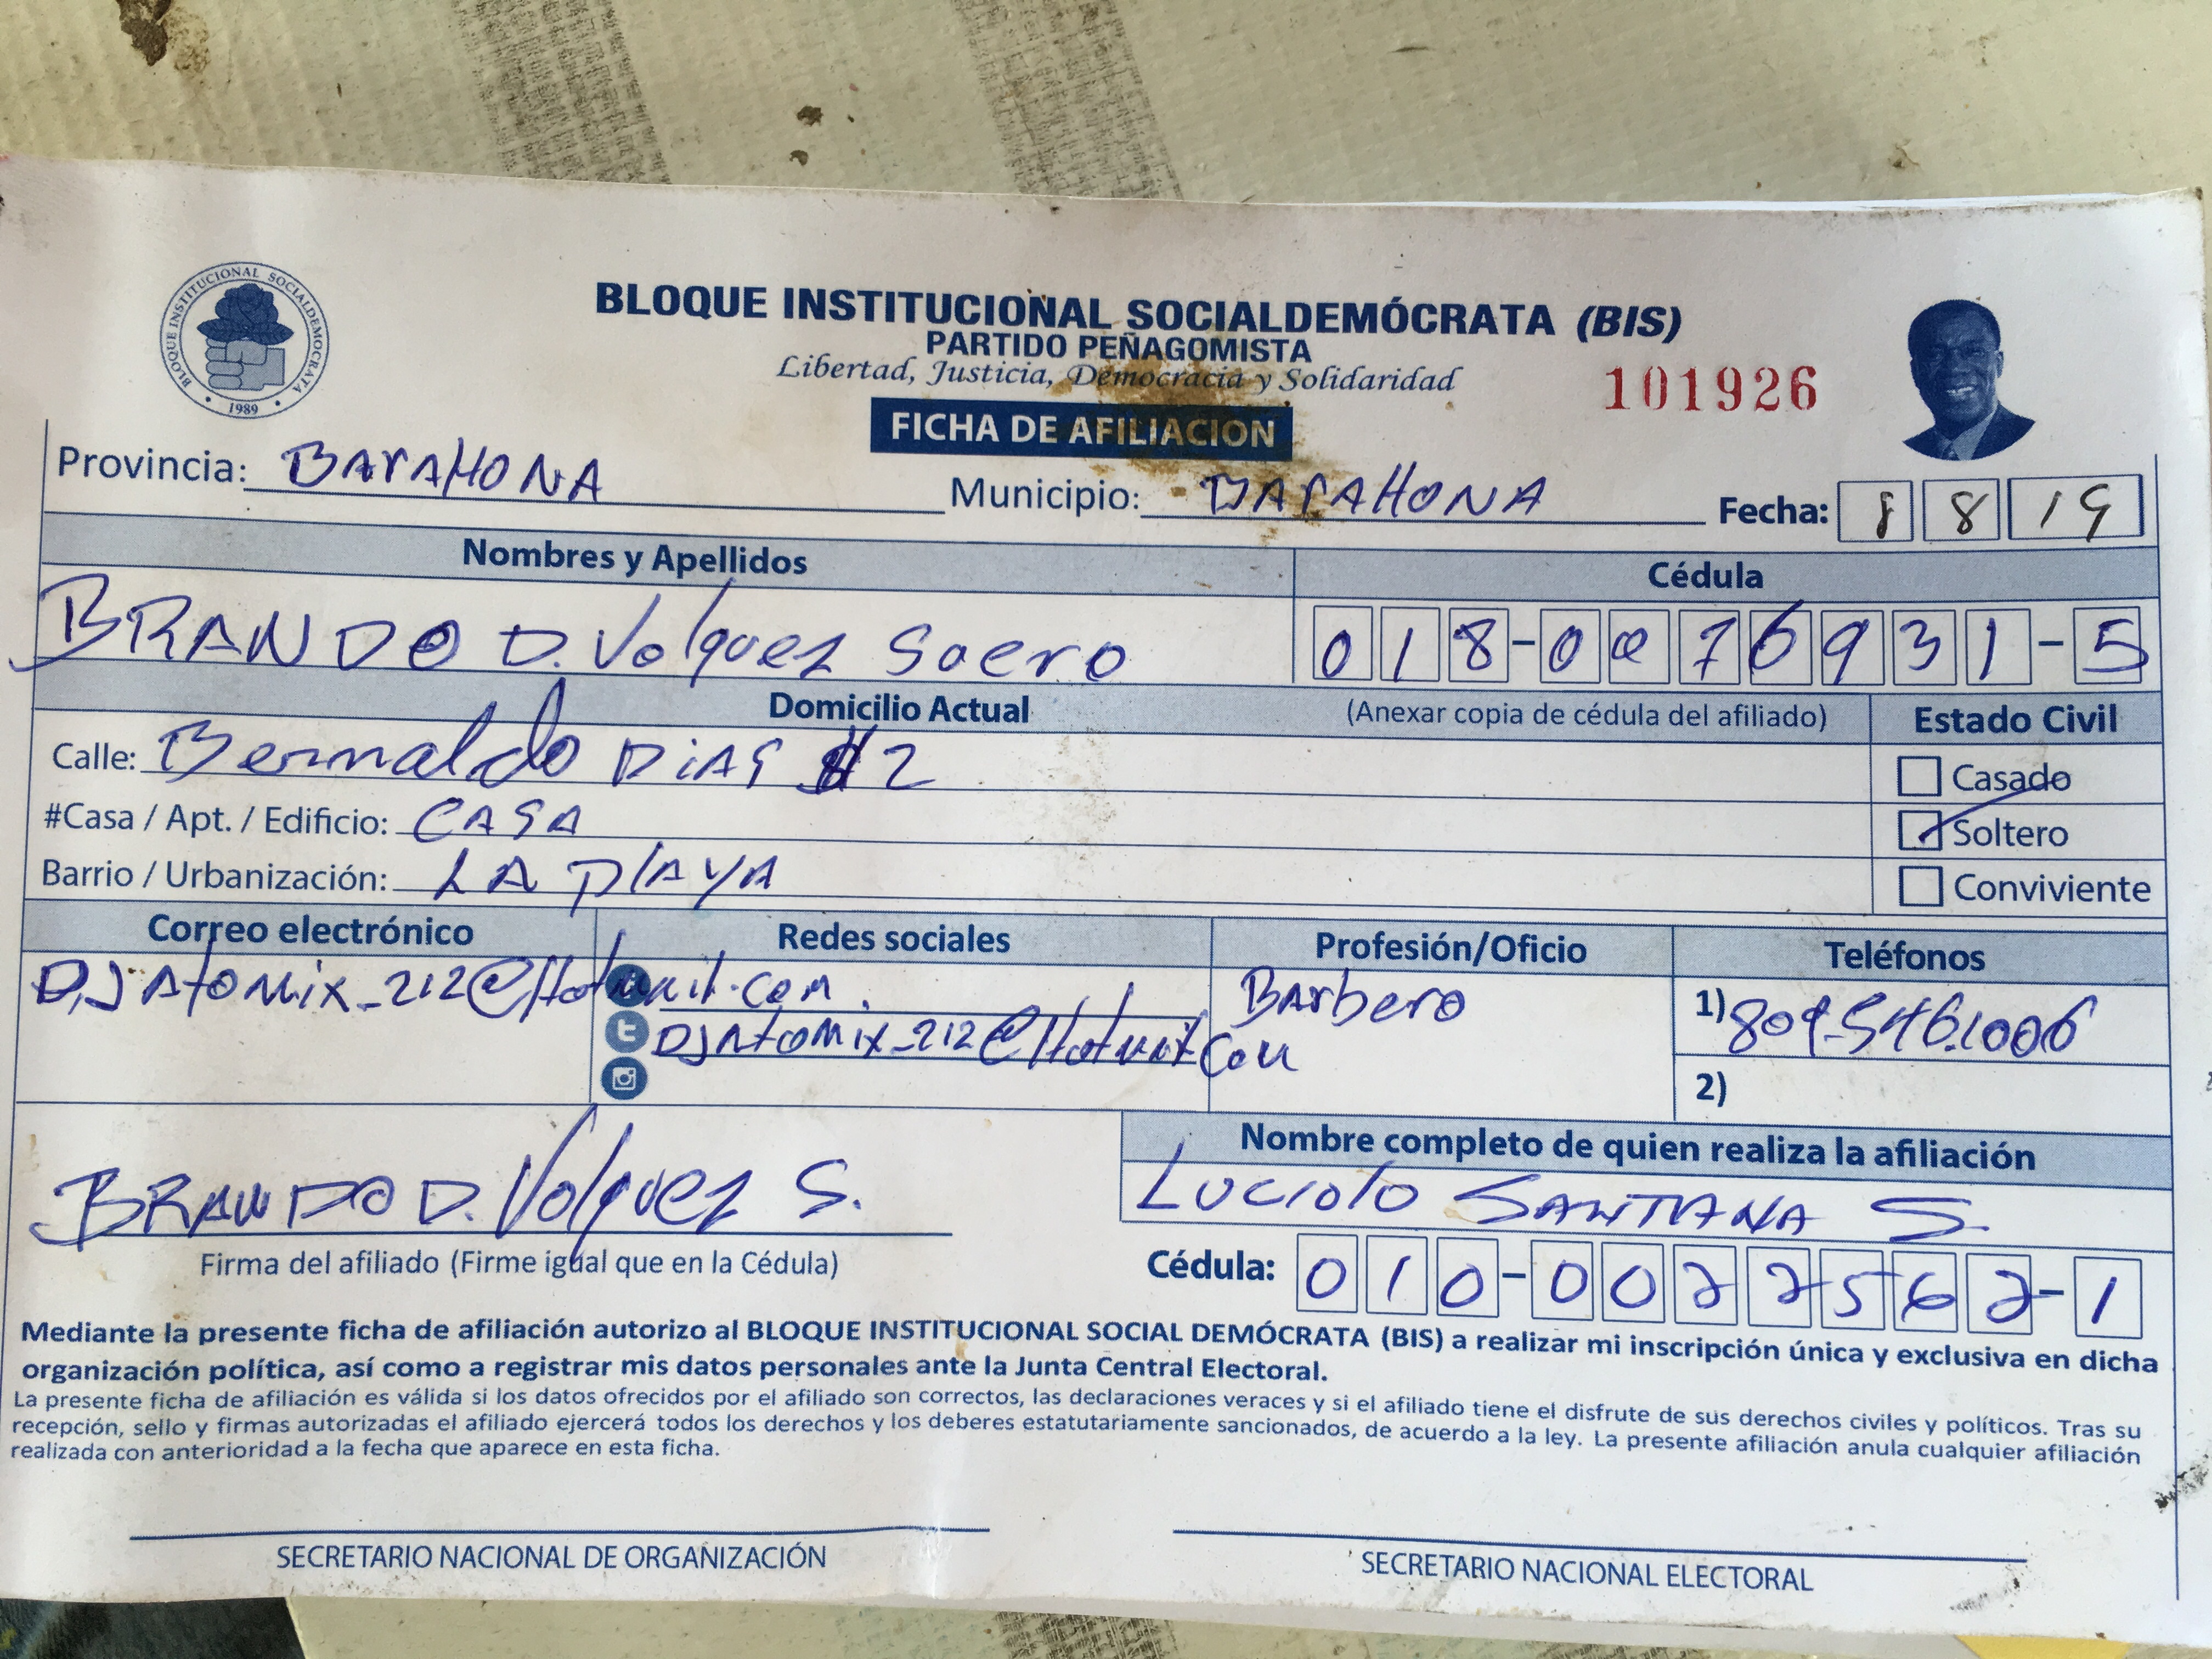 BLOQUE INSTITUCIONAL SOCIALDEMOCRATA
1989
BLOQUE INSTITUCIONAL SOCIALDEMÓCRATA (BIS)
PARTIDO PEÑAGOMISTA
Libertad, Justicia, Democracia y Solidaridad
101926
FICHA DE AFILIACION
Provincia: BArAHONA Municipio: BArAHONA Fecha: 8 8 19
Nombres y Apellidos Cédula
BRANDO D. Volquez Suero 018-0076931-5
Domicilio Actual (Anexar copia de cédula del afiliado) Estado Civil
Calle: Bernaldo DiAS #2 Casado
#Casa / Apt. / Edificio: CASA Soltero
Barrio / Urbanización: LA PlAyA Conviviente
Correo electrónico Redes sociales Profesión/Oficio Teléfonos
DJAtoMix_212@Hotmail.com. BArbero 1) 809-546.1006
DJAtoMix_212@Hotmail Com
2)
Nombre completo de quien realiza la afiliación
BRANDO D. Volquez S. Luciolo SANTANA S.
Firma del afiliado (Firme igual que en la Cédula) Cédula: 010-0022562-1
Mediante la presente ficha de afiliación autorizo al BLOQUE INSTITUCIONAL SOCIAL DEMÓCRATA (BIS) a realizar mi inscripción única y exclusiva en dicha
organización política, así como a registrar mis datos personales ante la Junta Central Electoral.
La presente ficha de afiliación es válida si los datos ofrecidos por el afiliado son correctos, las declaraciones veraces y si el afiliado tiene el disfrute de sus derechos civiles y políticos. Tras su
recepción, sello y firmas autorizadas el afiliado ejercerá todos los derechos y los deberes estatutariamente sancionados, de acuerdo a la ley. La presente afiliación anula cualquier afiliación
realizada con anterioridad a la fecha que aparece en esta ficha.
SECRETARIO NACIONAL DE ORGANIZACIÓN SECRETARIO NACIONAL ELECTORAL